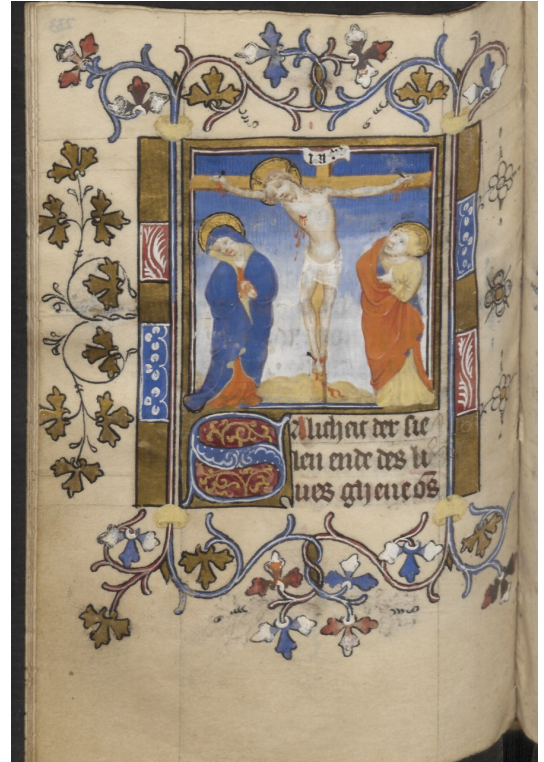 Salicheit der sie
len ende des li
ues gheue o̅s